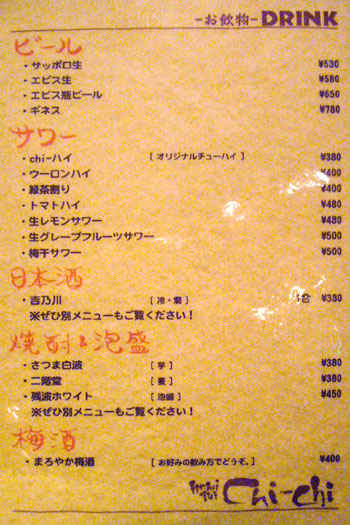 -お飲物-DRINK
ビール
・サッポロ生 ¥530
・エビス生 ¥580
・エビス瓶ビール ¥650
・ギネス ¥780
サワー
・chi-ハイ [オリジナルチューハイ] ¥380
・ウーロンハイ ¥400
・緑茶割り ¥400
・トマトハイ ¥480
・生レモンサワー ¥480
・生グレープフルーツサワー ¥500
・梅干サワー ¥500
日本酒
・吉乃川 [冷・燗] 合 ¥380
※ぜひ別メニューもご覧ください！
焼酎&泡盛
・さつま白波 [芋] ¥380
・二階堂 [麦] ¥380
・残波ホワイト [泡盛] ¥450
※ぜひ別メニューもご覧ください！
梅酒
・まろやか梅酒 [お好みの飲み方でどうぞ。] ¥400
Chi-chi